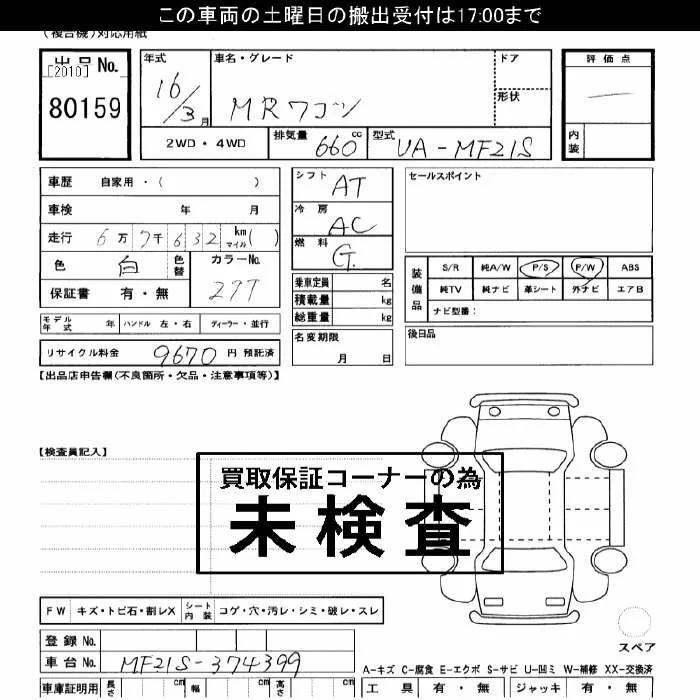 この車両の土曜日の搬出受付は17:00まで
(複合機)対応用紙
出品No.
[2010]
80159
年式 車名・グレード ドア 評価点
16/3月 MRワゴン 形状 —
2WD・4WD 排気量 660cc 型式 UA-MF21S 内装
車歴 自家用・( )
車検 年 月
走行 6万7千632 km マイル( )
色 白 色替 カラーNo.
保証書 有・無 27T
シフト AT
冷房 AC
燃料 G.
乗車定員 名
積載量 kg
総重量 kg
名変期限
月 日
セールスポイント
装備品 S/R 純A/W P/S P/W ABS
純TV 純ナビ 革シート 外ナビ エアB
ナビ型番:
後日品
モデル年式 年 ハンドル 左・右 ディーラー・並行
リサイクル料金 9670 円 預託済
【出品店申告欄(不良箇所・欠品・注意事項等)】
【検査員記入】
買取保証コーナーの為
未検査
FW キズ・トビ石・割レX シート内装 コゲ・穴・汚レ・シミ・破レ・スレ
スペア
登録No.
車台No. MF21S-374399
A-キズ C-腐食 E-エクボ S-サビ U-凹ミ W-補修 XX-交換済
車庫証明用 長さ cm 幅 cm 高さ cm 工具 有・無 ジャッキ 有・無